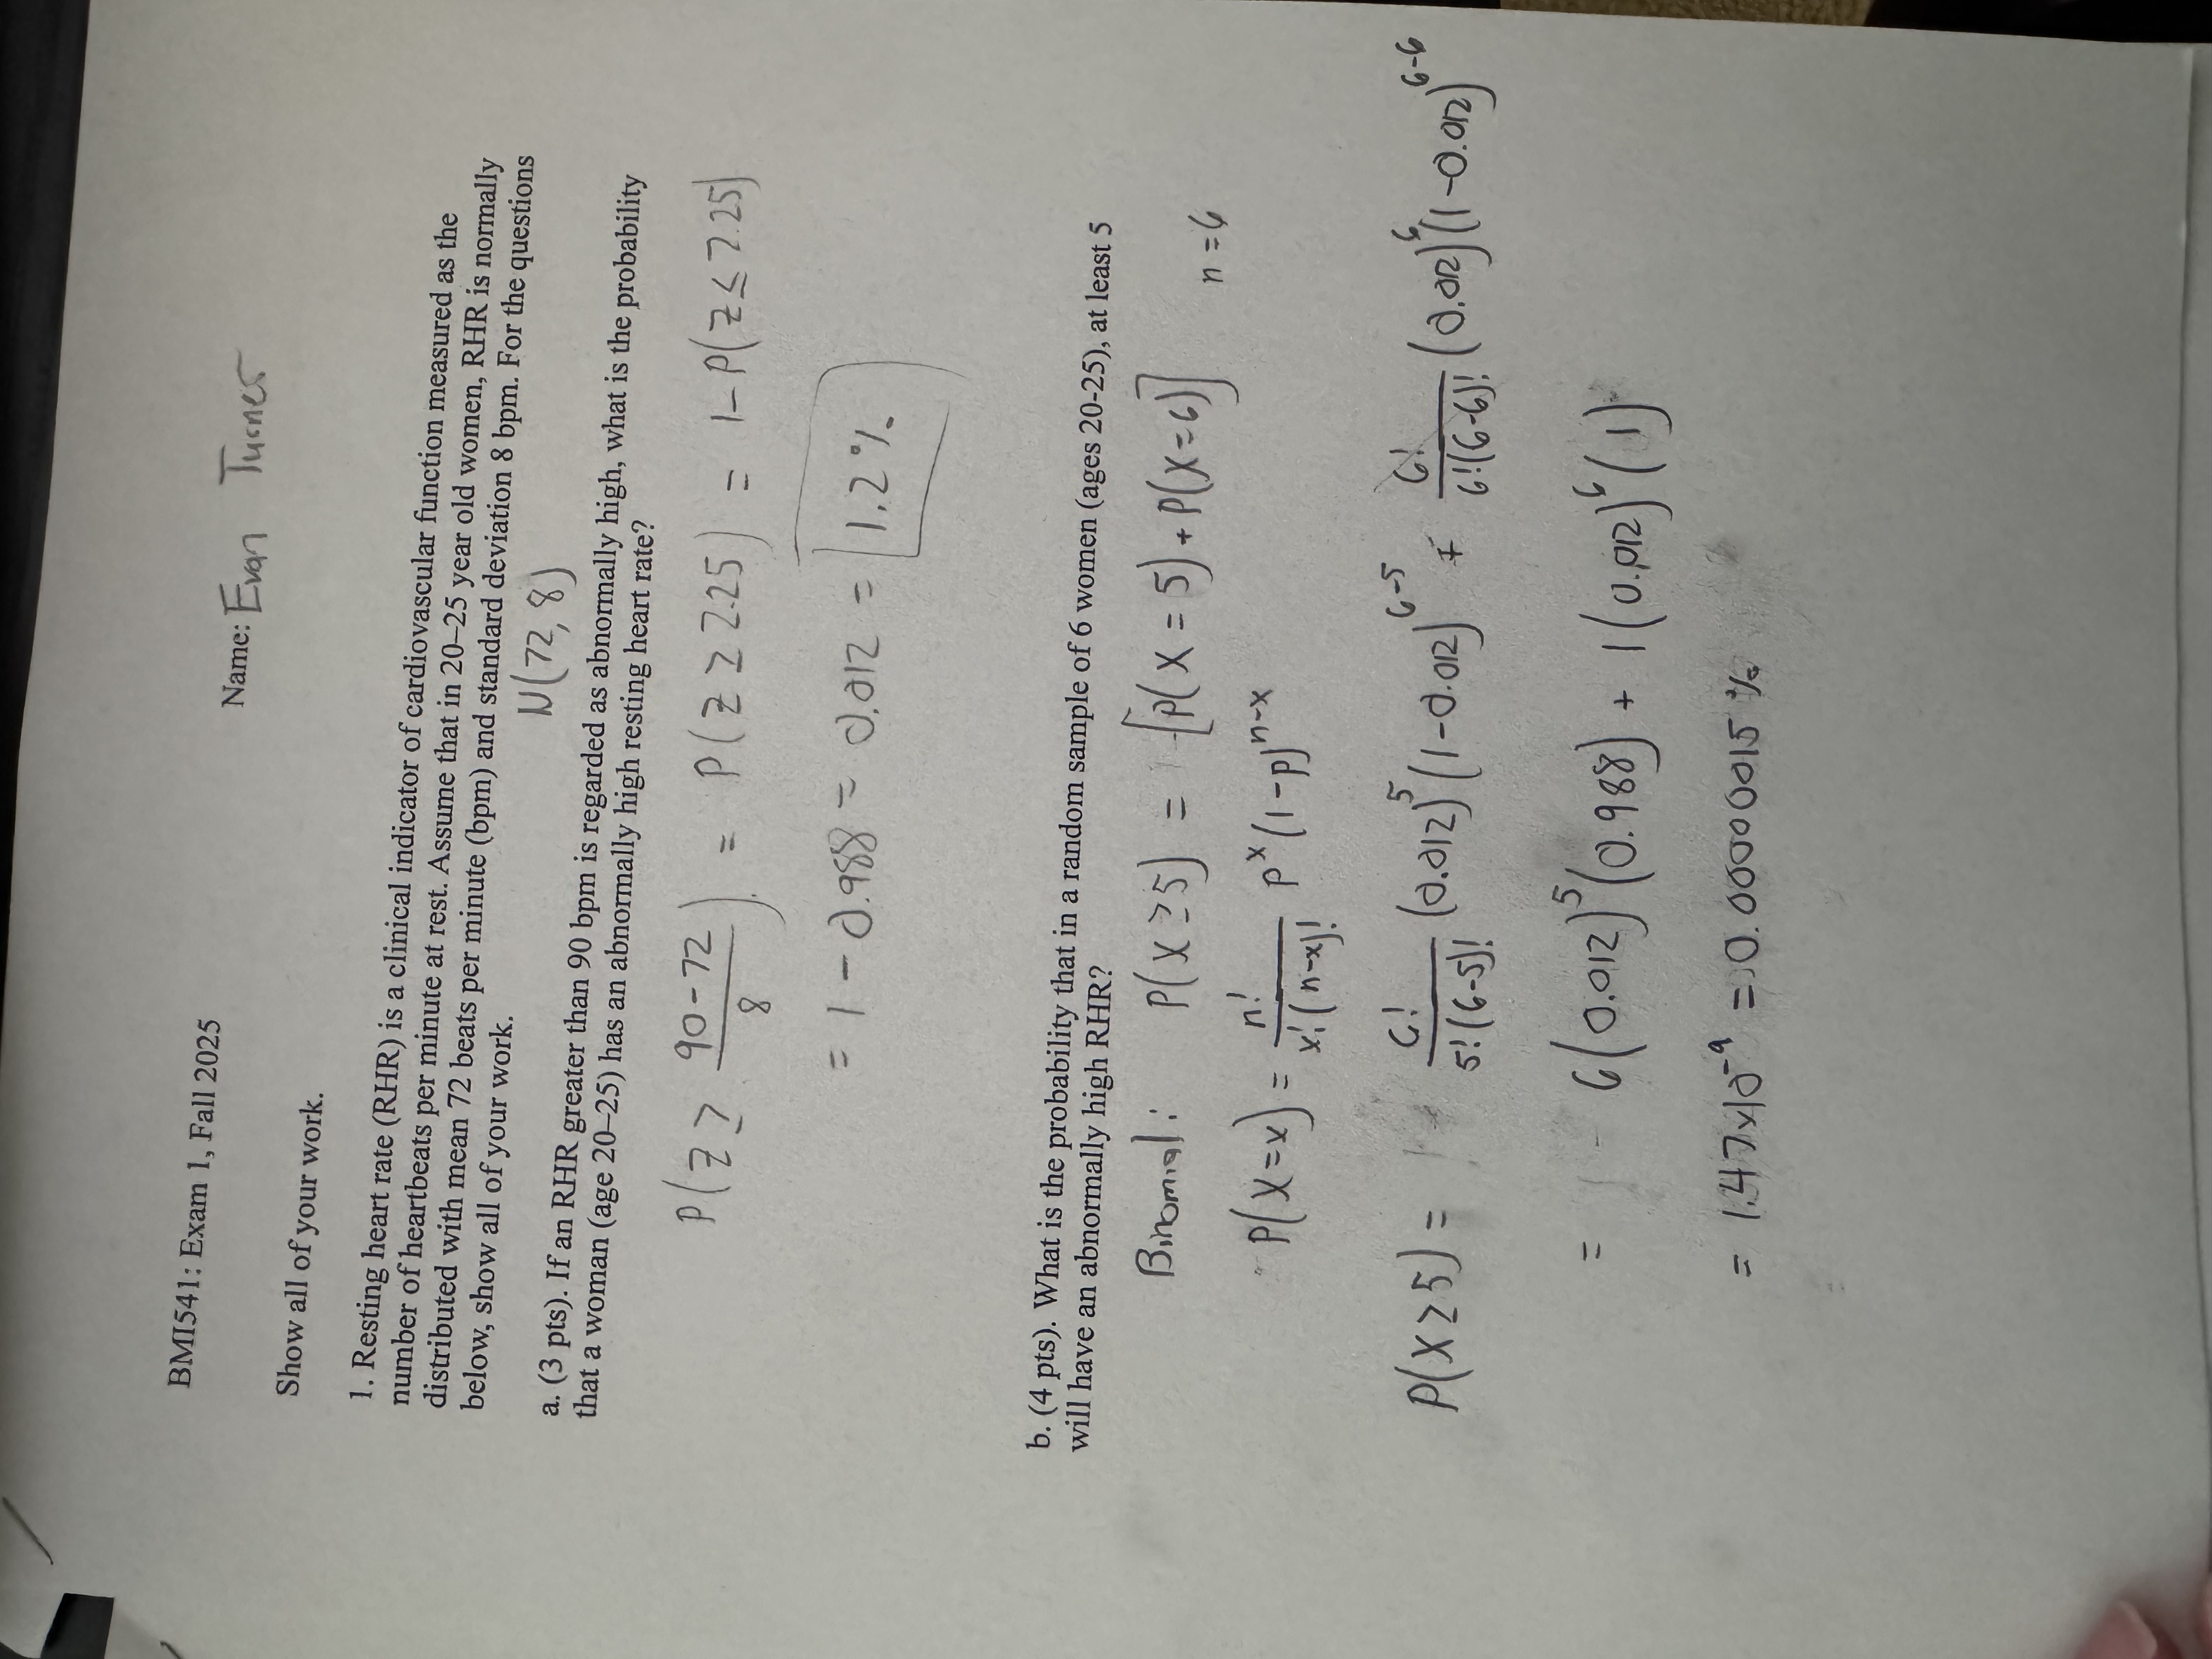 BMI541: Exam 1, Fall 2025
Name: Evan Turner
Show all of your work.
1. Resting heart rate (RHR) is a clinical indicator of cardiovascular function measured as the
number of heartbeats per minute at rest. Assume that in 20–25 year old women, RHR is normally
distributed with mean 72 beats per minute (bpm) and standard deviation 8 bpm. For the questions
below, show all of your work.
N(72, 8)
a. (3 pts). If an RHR greater than 90 bpm is regarded as abnormally high, what is the probability
that a woman (age 20–25) has an abnormally high resting heart rate?
P(Z ≥ (90-72)/8) = P(Z ≥ 2.25) = 1-P(Z ≤ 2.25)
= 1 - 0.988 = 0.012 = 1.2%
b. (4 pts). What is the probability that in a random sample of 6 women (ages 20-25), at least 5
will have an abnormally high RHR?
Binomial: P(X ≥ 5) = [P(X = 5) + P(X=6)]
n = 6
P(X=x) = n!/(x!(n-x)!) p^x (1-p)^(n-x)
P(X ≥ 5) = 6!/(5!(6-5)!) (0.012)^5 (1-0.012)^(6-5) + 6!/(6!(6-6)!) (0.012)^6 (1-0.012)^(6-6)
= 6(0.012)^5 (0.988) + 1(0.012)^6 (1)
= 1.47x10^-9 = 0.00000015 %